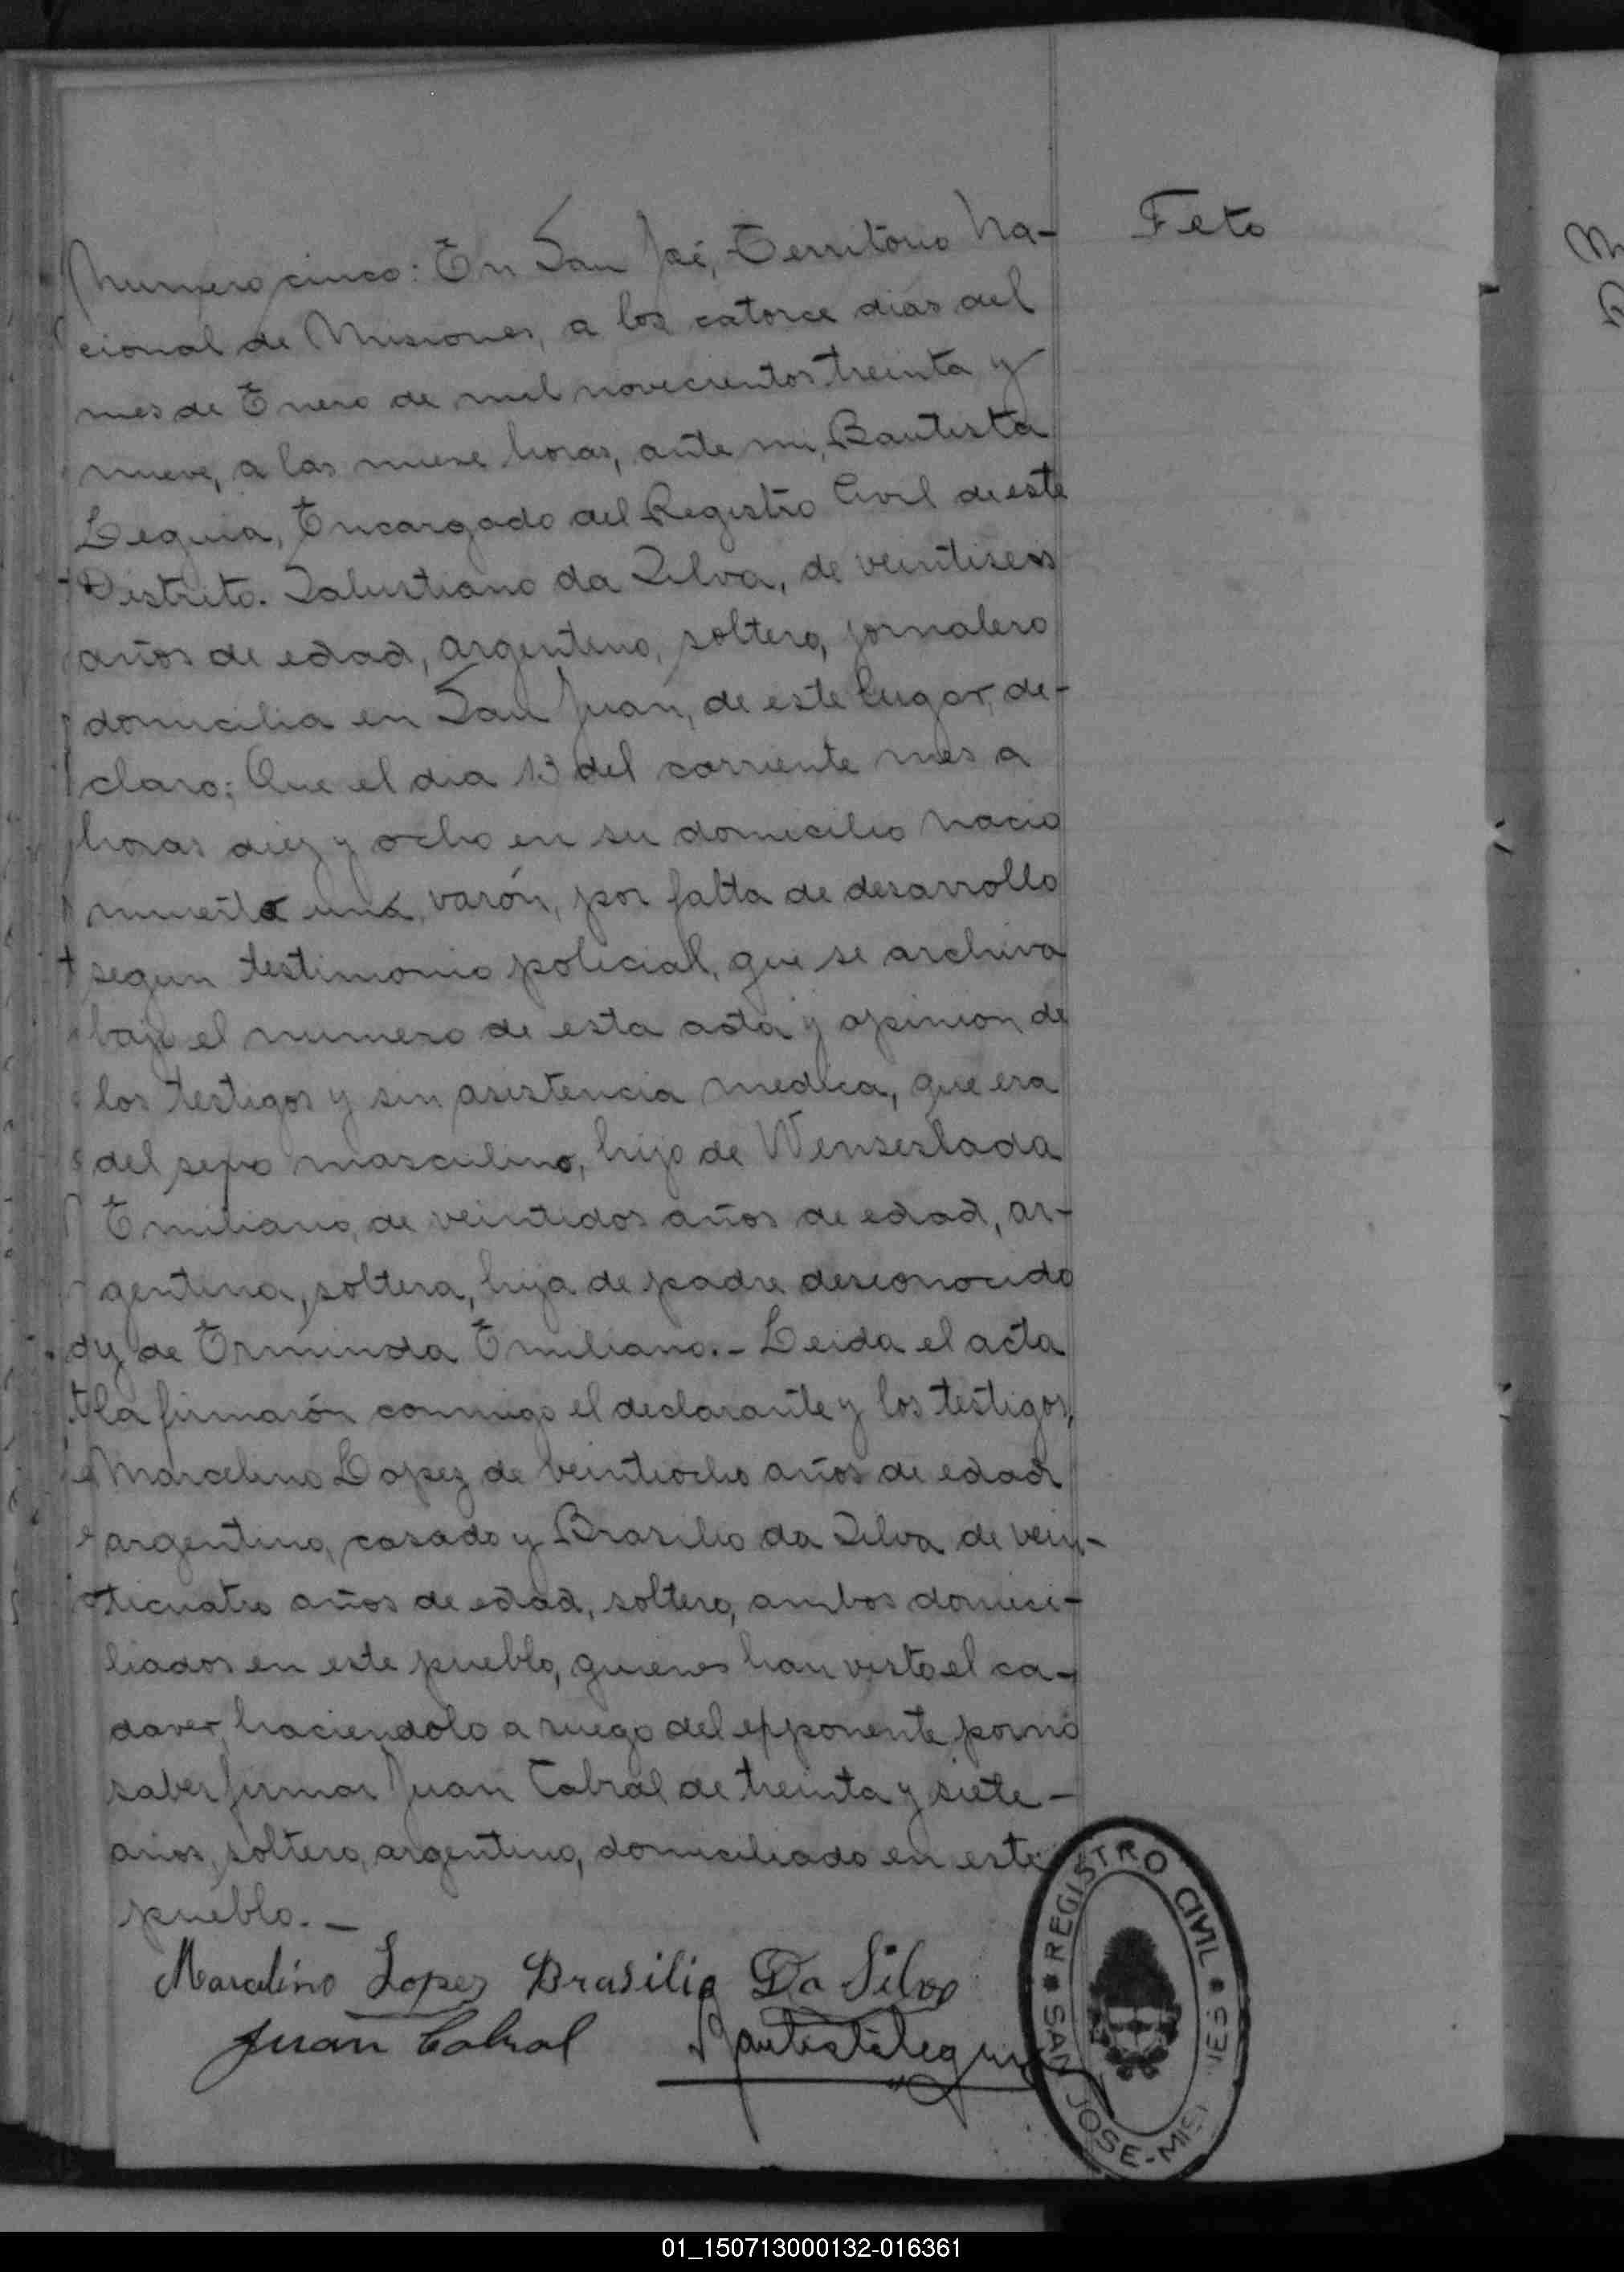 Numero cinco: En San José, Territorio Na-
cional de Misiones, a los catorce dias del
mes de Enero de mil novecientos treinta y
nueve, a las nueve horas, ante mi, Bautista
Leguia, Encargado del Registro Civil de este
Distrito. Salustiano da Silva, de veintiseis
años de edad, argentino, soltero, jornalero
domicilia en San Juan, de este lugar, de-
claro: Que el dia 13 del corriente mes a
horas diez y ocho en su domicilio nacio
muerto una, varón, por falta de desarrollo
segun testimonio policial, que se archiva
bajo el numero de esta acta y opinion de
los testigos y sin asistencia medica, que era
del sexo masculino, hijo de Wenseslada
Emiliano, de veintidos años de edad, ar-
gentina, soltera, hija de padre desconocido
y de Erminda Emiliano.- Leida el acta
la firmarón conmigo el declarante y los testigos,
Marcelino Lopez de veintiocho años de edad
argentino, casado y Brasilio da Silva de vein-
ticuatro años de edad, soltero, ambos domici-
liados en este pueblo, quienes han visto el ca-
daver, haciendolo a ruego del exponente por no
saber firmar Juan Cabral de treinta y siete -
años, soltero, argentino, domiciliado en este
pueblo. -
Marcelino Lopez Brasilio Da Silva
Juan Cabral Bautista Leguia
Feto
REGISTRO CIVIL
SAN JOSE-MISIONES
01_150713000132-016361